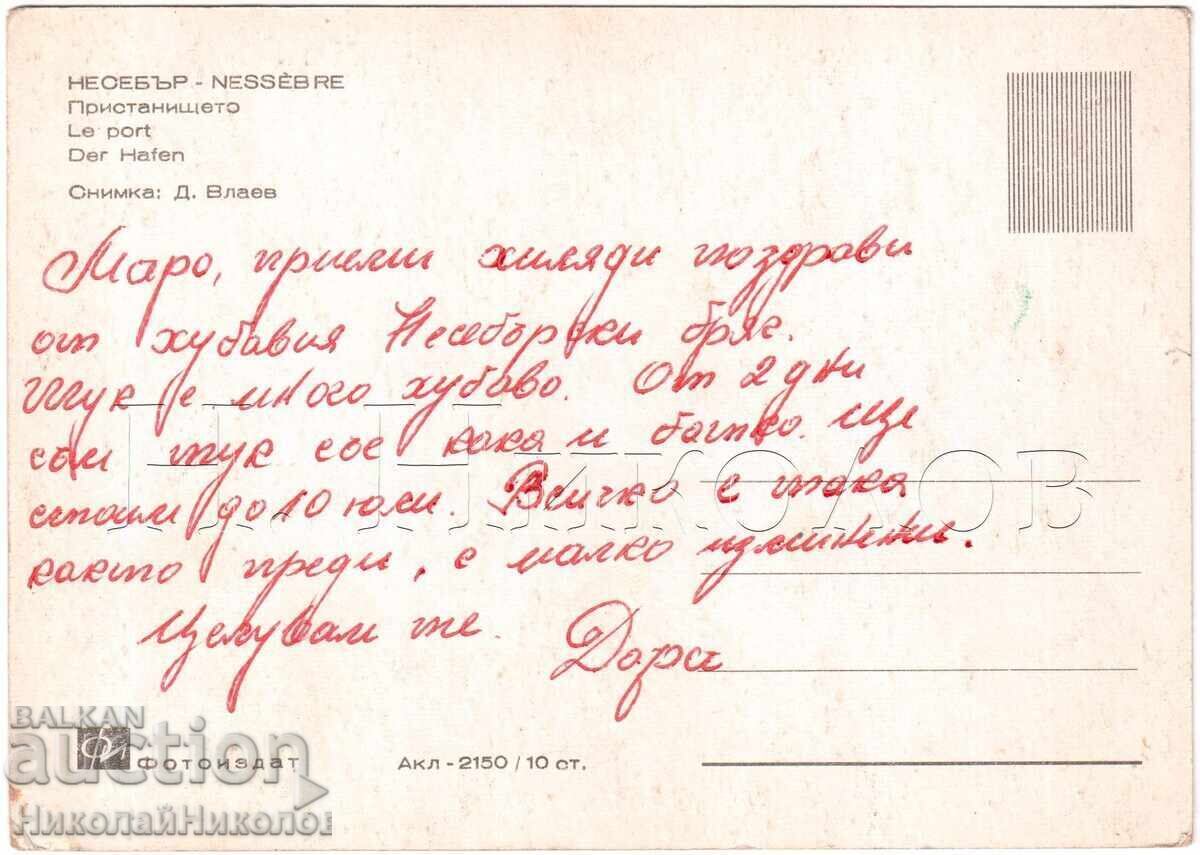 НЕСЕБЪР - NESSÈBRE
Пристанището
Le port
Der Hafen
Снимка: Д. Влаев
Маро, приеми хиляди поздрави
от хубавия Несебърски бряг.
Тук е много хубаво. От 2 дни
съм тук със кака и батко. Ще
стоим до 10 юли. Всичко е така
както преди, с малко изминени.
Целувам те. Дора
Н. НИКОЛОВ
BALKAN
auction
Фотоиздат
Акл - 2150 / 10 ст.
НиколайНиколов